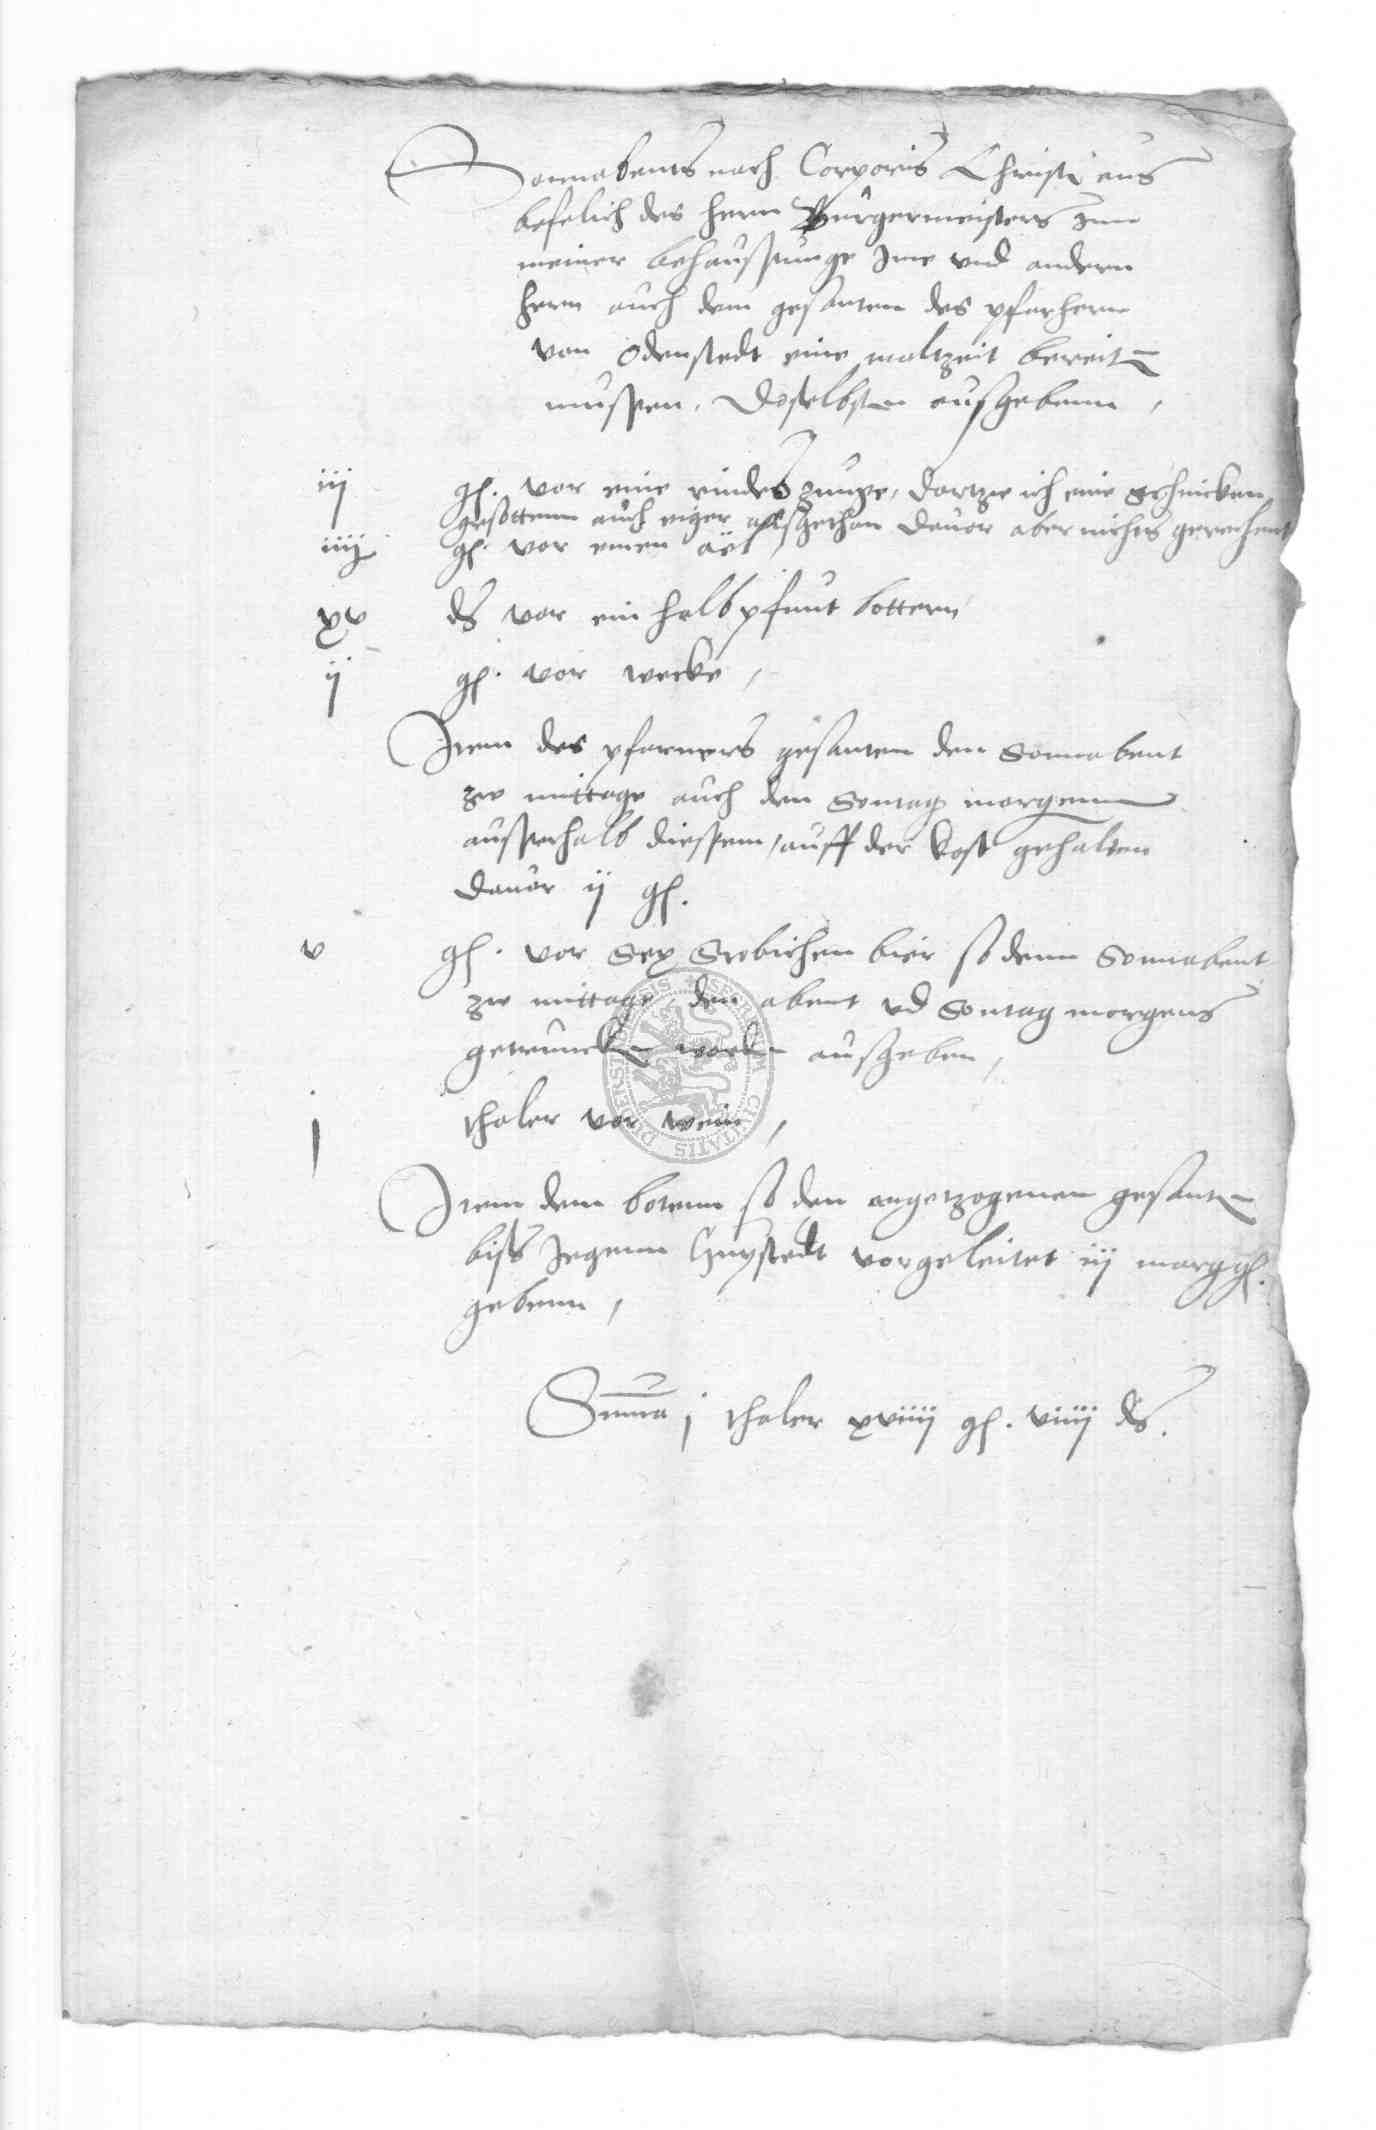 Sonnabents nach Corporis Christi aus
befelich des hern Burgermeisters Inn
meiner behaussunge Ime vnd andern
hern auch dem gesanten des pfarhern
von Odenstedt eine maltzeit bereiten
mussen, Doselbsten ausgebenn,
iij gl. vor eine rindes zunge, dartzw ich eine schincken
gesottenn auch eiger ausgethan dauor aber nichts gerechent
iiij gl. vor einen ael
xv d vor ein halb pfunt bottern
ij gl. vor wecke,
Item des pfarners gesanten den Sonnabent
zw mittage auch den Sontag morgenn
ausserhalb diessem, auff der kost gehalten
dauor ij gl.
v gl. vor Sex Stobichen bier so denn Sonnabent
zw mittage, den abent vd Sontag morgens
getruncken worden ausgeben,
j thaler vor wein,
Item dem botenn so den angetzogenen gesanten
biss Iegenn vorgeleitet iij marggl.
gebenn,
Summa j thaler xviiij gl. viiij d.
SECRETUM CIVITATIS